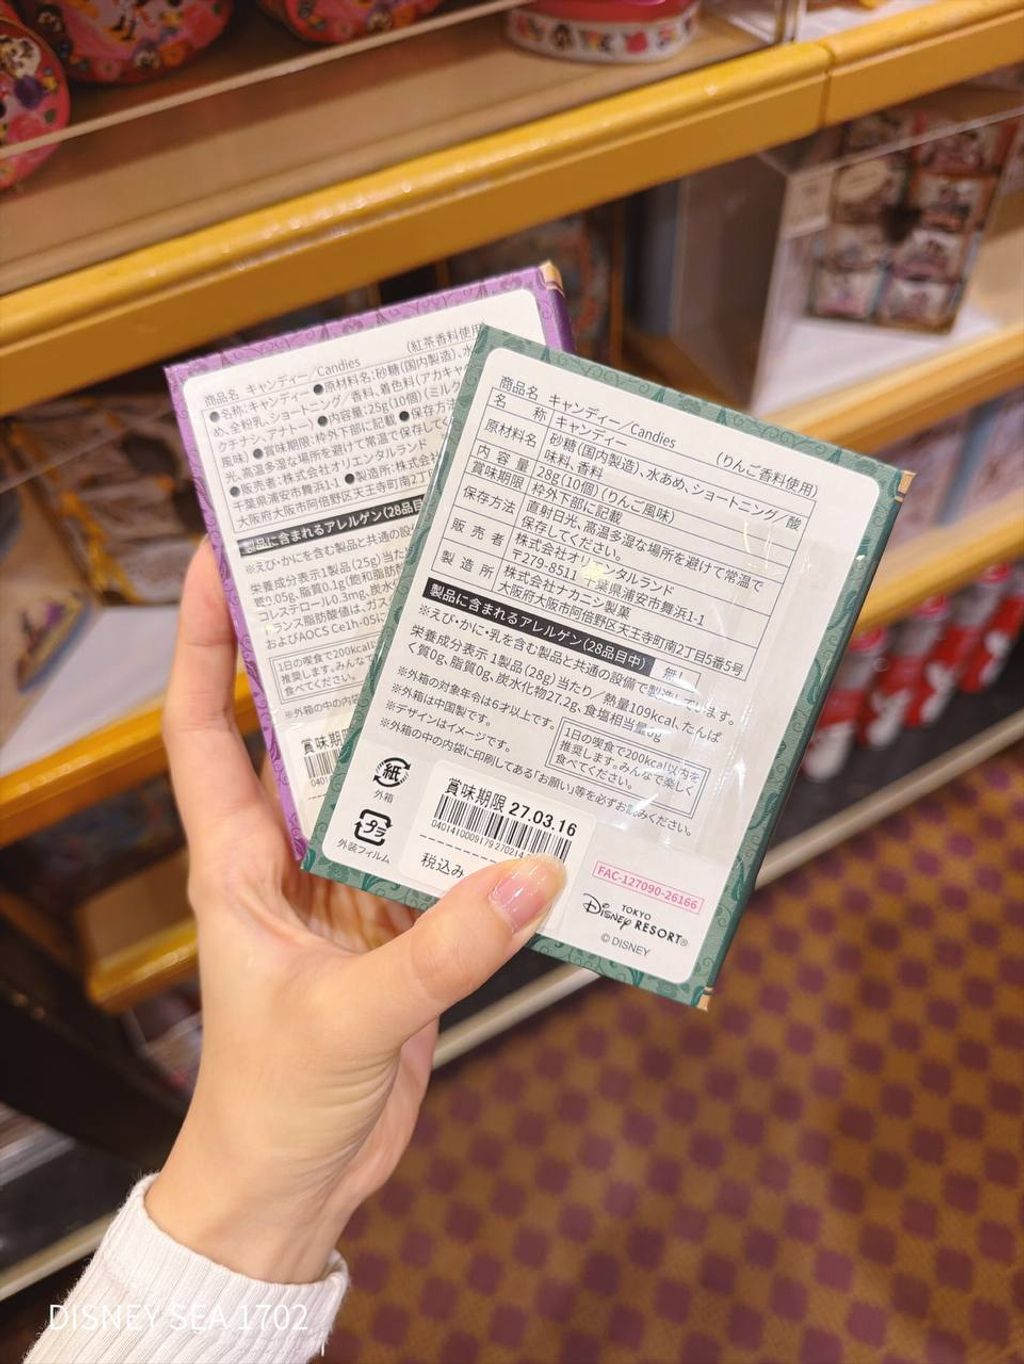 商品名 キャンディー／Candies
(紅茶香料使用
●名称:キャンディー●原材料名:砂糖(国内製造)、水
め、全粉乳、ショートニング／香料、着色料(アカキャ
クチナシ、アナトー)●内容量:25g(10個)(ミルク
風味)●賞味期限:枠外下部に記載●保存方法
光、高温多湿な場所を避けて常温で保存してく
●販売者:株式会社オリエンタルランド
千葉県浦安市舞浜1-1 ●製造所:株式会社
大阪府大阪市阿倍野区天王寺町南2丁
製品に含まれるアレルゲン(28品目
※えび・かにを含む製品と共通の設
栄養成分表示1製品(25g)当た
0.05g、脂質0.1g(飽和脂肪
コレステロール0.3mg、炭水
トランス脂肪酸値は、ガス
およびAOCS Ce1h-05に
1日の喫食で200kcal
推奨します。みんなで
食べてください。
※外箱の中の内袋に
賞味期
0401
商品名 キャンディー／Candies
(りんご香料使用)
名称 キャンディー
原材料名 砂糖(国内製造)、水あめ、ショートニング／酸
味料、香料
内容量 28g(10個)(りんご風味)
賞味期限 枠外下部に記載
保存方法 直射日光、高温多湿な場所を避けて常温で
保存してください。
販売者 株式会社オリエンタルランド
〒279-8511 千葉県浦安市舞浜1-1
製造所 株式会社ナカニシ製菓
大阪府大阪市阿倍野区天王寺町南2丁目5番5号
製品に含まれるアレルゲン(28品目中) 無し
※えび・かに・乳を含む製品と共通の設備で製造しています。
栄養成分表示 1製品(28g)当たり／熱量109kcal、たんぱ
く質0g、脂質0g、炭水化物27.2g、食塩相当量0g
※外箱の対象年令は6才以上です。
※外箱は中国製です。
※デザインはイメージです。
1日の喫食で200kcal以内を
推奨します。みんなで楽しく
食べてください。
※外箱の中の内袋に印刷してある「お願い」等を必ずお読みください。
紙
外箱
プラ
外装フィルム
賞味期限 27.03.16
税込み
FAC-127090-26166
TOKYO
Disney RESORT®
© DISNEY
DISNEY SEA 1702